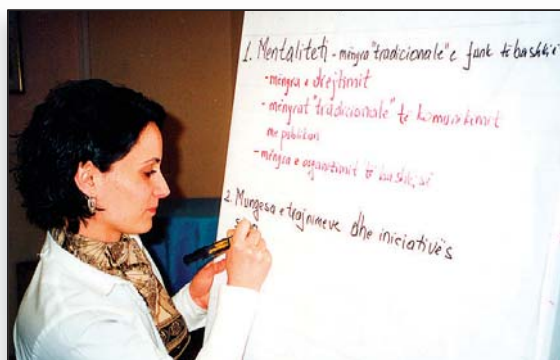 1. Mentaliteti - mënyra "tradicionale" e funk të bashkisë
- mënyra e drejtimit
- mënyrat "tradicionale" të komunikimit
me publikun
- mënyra e organizimit të bashkisë
2. Mungesa e trajnimeve dhe iniciativës